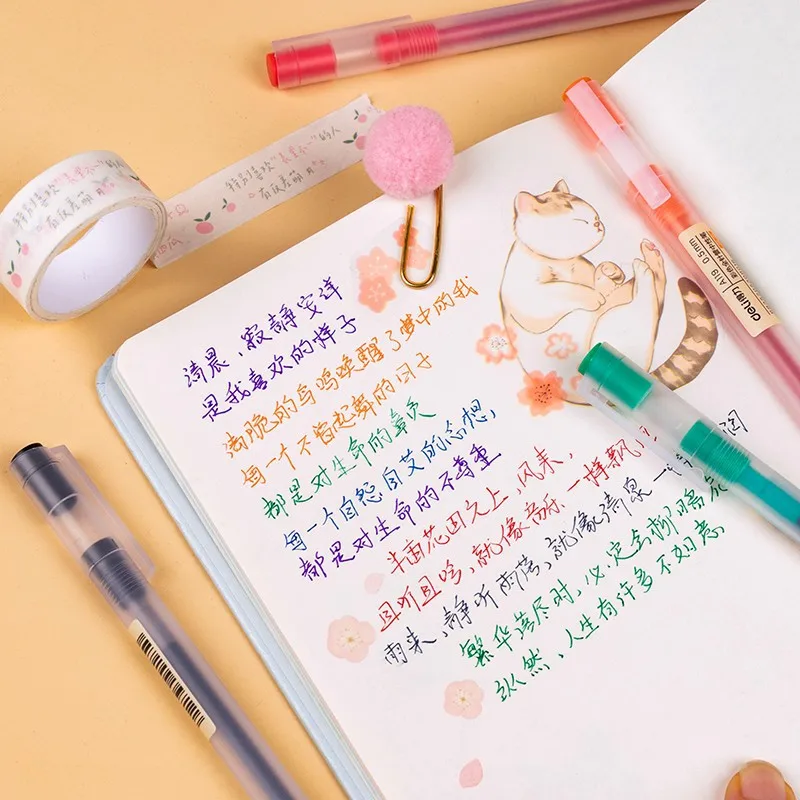 特别喜欢
的人
清晨,寂静安详
是我喜欢的样子
清脆的鸟鸣唤醒了梦中的我
每一个不曾起舞的日子
都是对生命的辜负
每一个自怨自艾的念想,
都是对生命的不尊重
半亩花田之上,风来,
且听且吟,就像音乐一样飘
雨来,静听雨落,就像清泉一 润
繁华落尽时,必定会柳暗花
纵然,人生有许多不如意
deli得力 A119 0.5mm